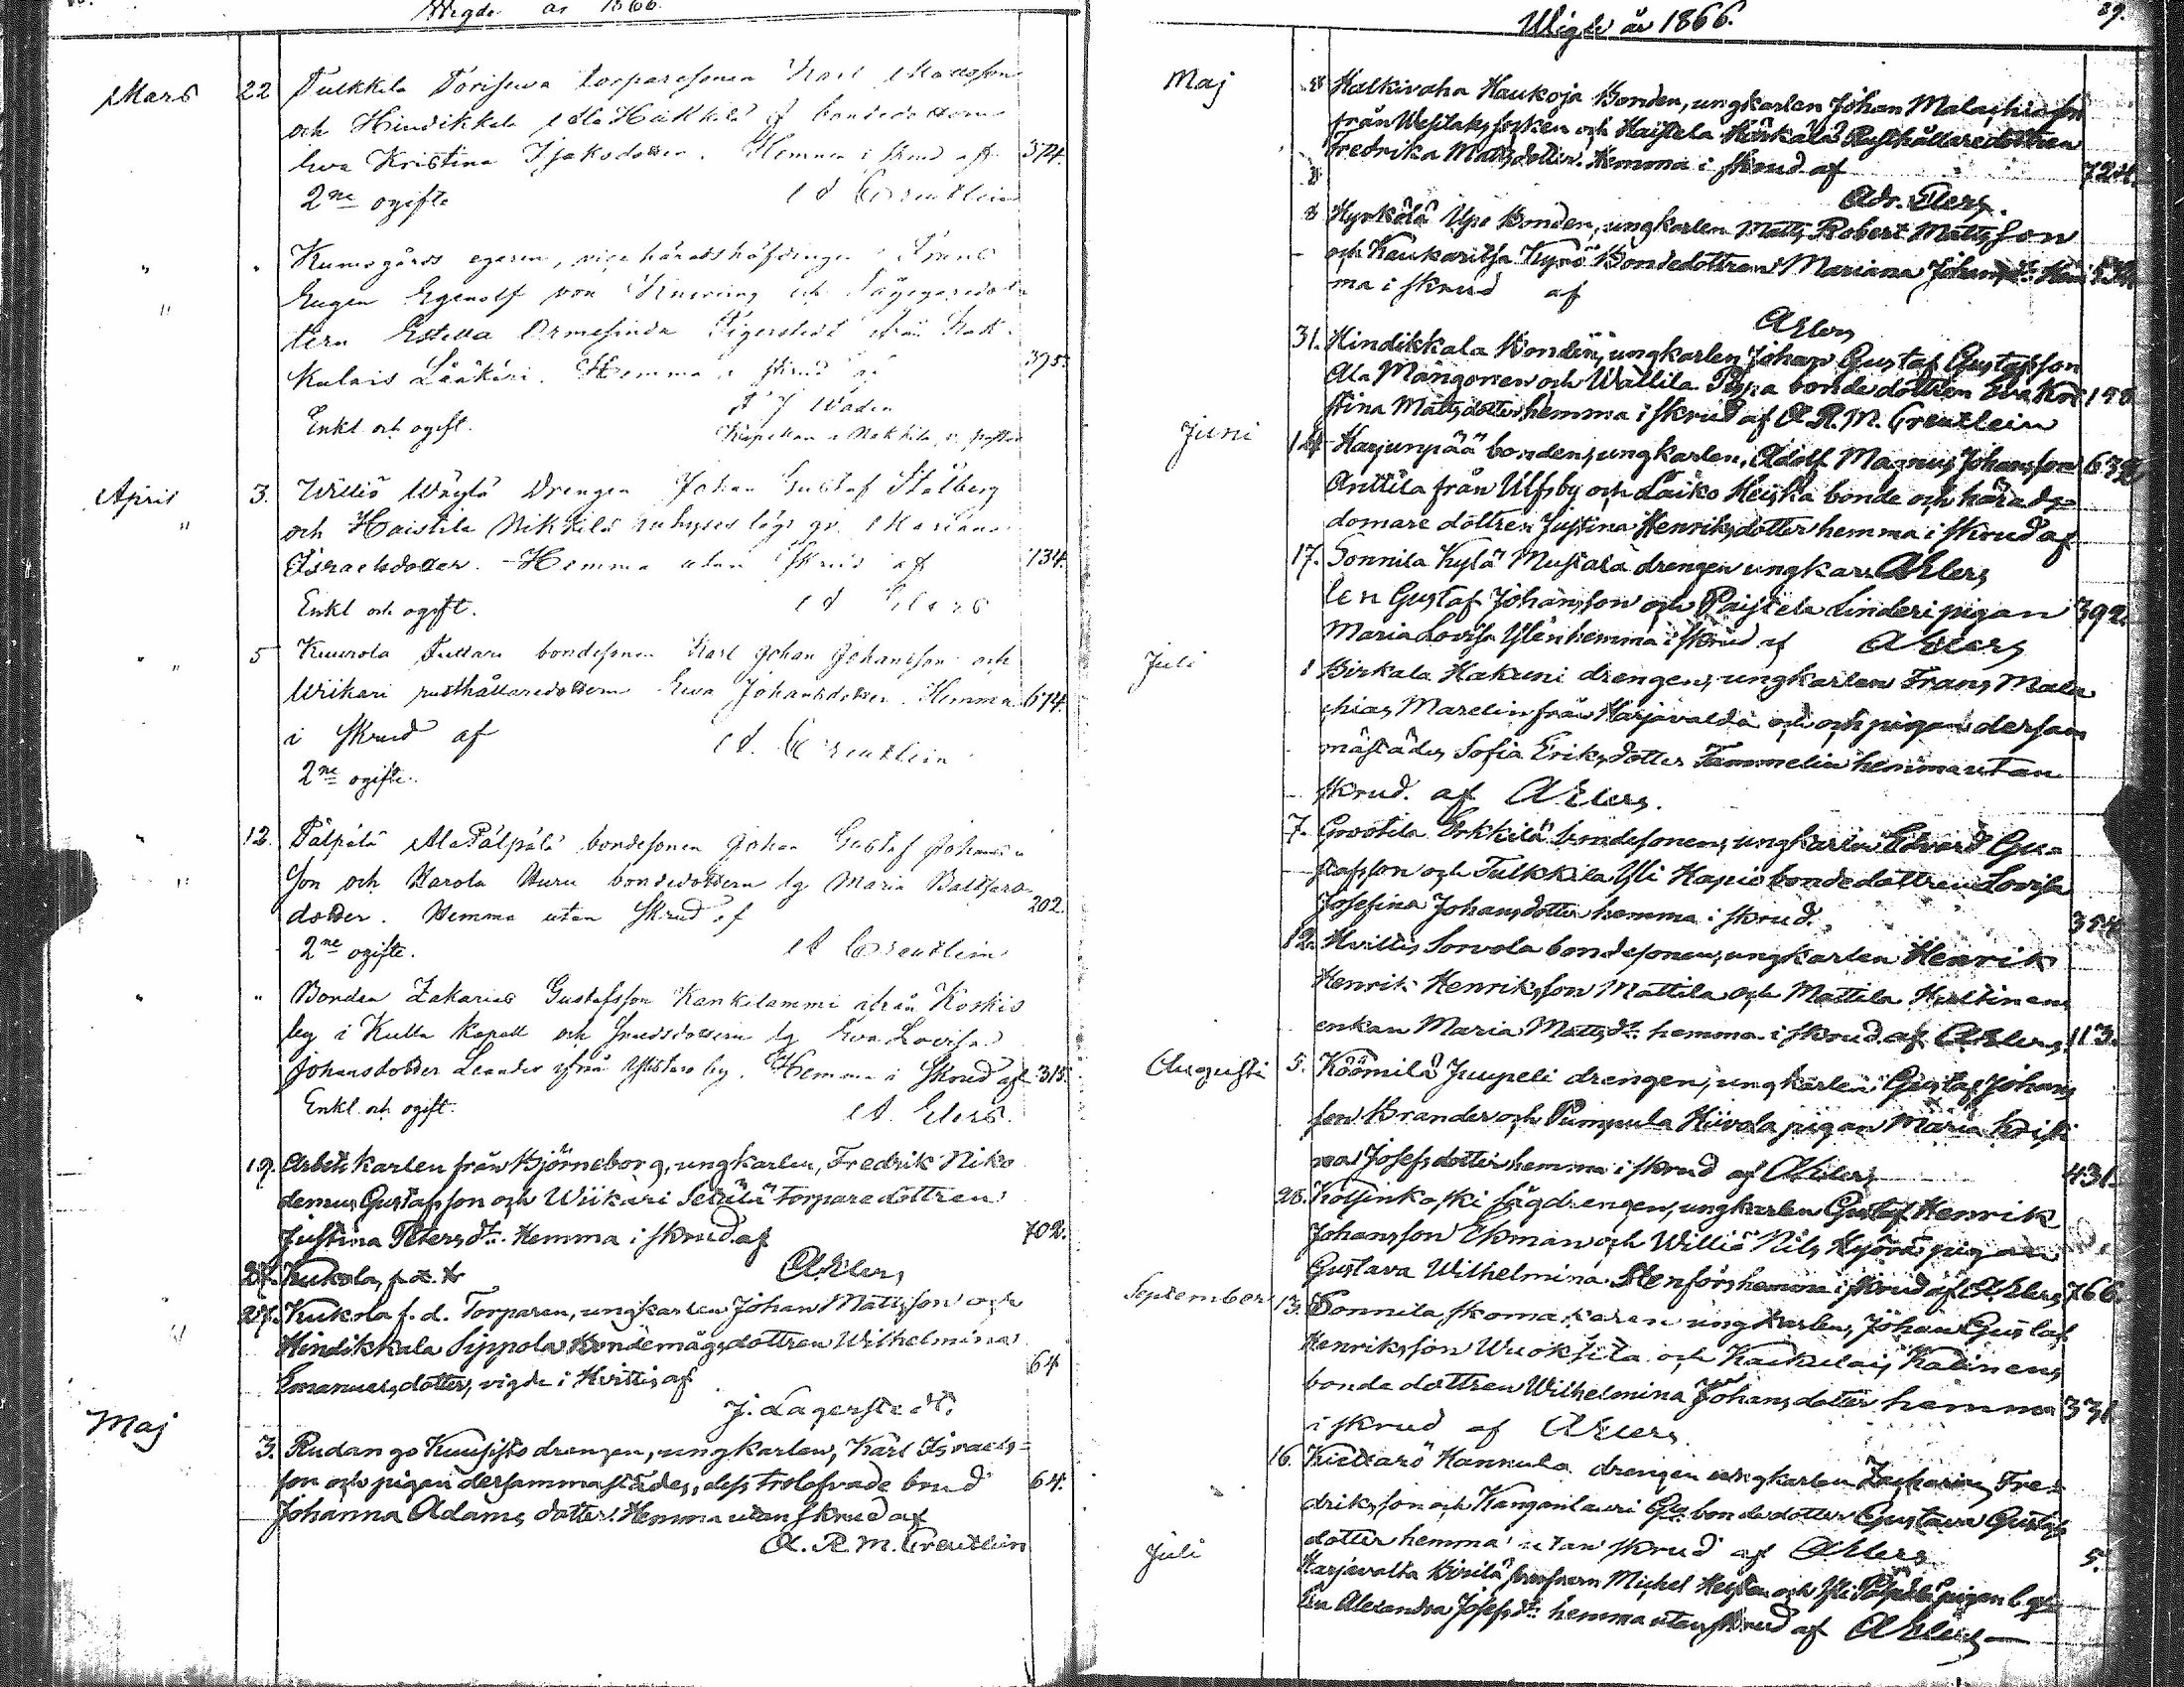 Wigde år 1866.
Mars 22 Tulkkila Torisewa torparesonen Karl Mattsson
och Hindikkala Ala Hukkala bondedottern
Ewa Kristina Isaksdotter. Hemma i skrud af 374.
2ne ogifte A Creutlein
" " Kumogårds egaren, vice häradshöfdingen Frans
" Eugen Egenolf von Knorring och Sågegaredot-
tern Estella Ormesinda Tigerstedt ifrån Kak-
kulais Lääkäri. Hemma i skrud af 395.
F J Wadén
Enkl. och ogift. Kapellan i Nakkila, v. pastor
April 3. Williö Wäylä Drengen Johan Gustaf Stålberg
" och Haistila Nikkilä inhyses lögs gr. Mariana
Israelsdotter. Hemma utan skrud af 134.
Enkl och ogift. A Elers
" " 5 Kuurola Tuttari bondesonen Karl Johan Johansson och
Wiikari rusthållaredottern Ewa Johansdotter. Hemma 674.
i skrud af A. Creutlein
2ne ogifte.
" 12. Pälpälä Ala Pälpälä bondesonen Johan Gustaf Johans-
" son och Karola Uuru bondedottern lg Maria Baltsars-
dotter. Hemma utan skrud af 202.
2ne ogifte. A Creutlein
" " Bonden Zakarias Gustafsson Kankilammi ifrån Koskis
by i Kulla Kapell och Smedsdottern lg Eva Lovisa
Johansdotter Leander ifrån Ylistaro by. Hemma i skrud af 315.
Enkl. och ogift. A. Elers.
19. Arbetskarlen från Björneborg, ungkarlen, Fredrik Niko
demus Gustafsson och Wiikari Setälä torparedottren
Justina Petersdr. Hemma i skrud af 702.
A Elers
27. Kukola, f. d. tr
27. Kukola f. d. Torparen, ungkarlen Johan Mattsson och
Hindikkala Sippola Bondemågsdottren Wilhelmina 64
Emanuelsdotter, vigde i Hvittis af
J. Lagerstedt.
Maj 3. Rudanga Kuusisto drengen, ungkarlen, Karl Israels-
son och pigan dersammastädes, dess trolofvade brud 64.
Johanna Adams dotter. Hemma utan skrud af
A. R. M. Creutlein
Wigde år 1866. 29.
Maj 8 Halkivaha Haukoja Bonden, ungkarlen Johan Malachiasson
från Wesilaks socken och Haistela Härkälä Rusthållaredottren
Fredrika Mattsdotter. Hemma i skrud af 724.
Adr. Elers.
8 Hyrkölä Upo Bonden, ungkarlen Matts Robert Mattsson
och Kaukaritsa Kynö Bondedottren Mariana Johansdr. Hem
ma i skrud af
A Elers
31. Hindikkala Bonden, ungkarlen Johan Gustaf Gustafsson
Ala Mangonen och Wallila bondedottren Eva Kri
stina Mattsdotter hemma i skrud af A. R. M. Creutlein
Juni 14 Harjunpää bonden, ungkarlen, Adolf Magnus Johansson 632
Anttila från Ulfsby och Laiko Heiska bonde och härads-
domare dottren Justina Henriksdotter hemma i skrud af
17. Sonnila Kylä Mustala drengen ungkar A Elers
len Gustaf Johansson och Paistela Linderi pigan 392.
Maria Lovisa Ylén hemma i skrud af A Elers
Juli 1 Birkala Hakuni drengen, ungkarlen Frans Mala
chias Marelin från Harjavalda och pigan dersam
mastädes Sofia Eriksdotter Tammelin hemma utan
skrud. af A Elers.
7. Grootila Erkkilä bondesonen, ungkarlen Edvard Gu-
stafsson och Tulkkila Yli Kapio bondedottren Lovisa
Josefina Johansdotter hemma i skrud. 354
12. Hvittis Sorvola bondesonen, ungkarlen Henrik
Henrik Henriksson Mattila och Mattila Hultinen
enkan Maria Mattsdr. hemma i skrud af A Elers. 113.
Augusti 5. Köömilä Juupeli drengen, ungkarlen Gustaf Johans
son Brander och Pumpula Hiivola pigan Maria Kristi
na Josefsdotter hemma i skrud af A Elers 431.
28. Koisinkoski sågdrengen, ungkarlen Gustaf Henrik
Johansson Ekman och Williö Nils Hyörä pigan
Gustava Wilhelmina Stenfors hemma i skrud af A Elers 766.
September 13. Sonnila, skomakaren ungkarlen, Johan Gustaf
Henriksson Wuoksita och Kakkulais Katinens
bonde dottren Wilhelmina Johansdotter hemma 331
i skrud af A Elers.
16. Kiettarö Hannula drengen ungkarlen Zacharias Fre-
driksson och Kanganlauri bondedotter Gustava Gustafs
dotter hemma utan skrud af A Elers 5.
Juli Harjavalta Pirilä Michel och Yli Pälpälä pigan
Alexandra Josefsdr. hemma utan skrud af A Elers